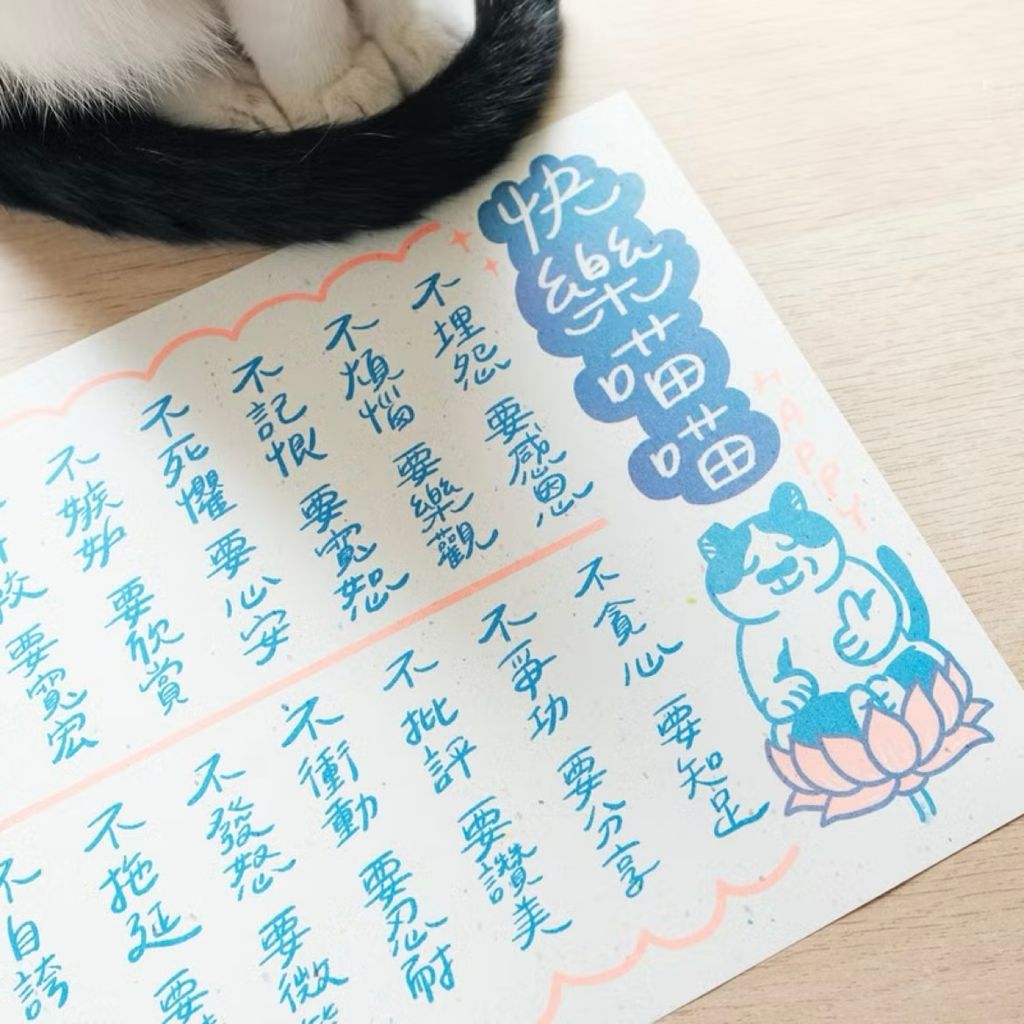 快樂喵喵
HAPPY
不埋怨 要感恩
不煩惱 要樂觀
不記恨 要寬恕
不死懼 要心安
不嫉妒 要欣賞
較 要寬宏
不貪心 要知足
不爭功 要分享
不批評 要讚美
不衝動 要忍耐
不發怒 要微
不拖延 要
不自誇